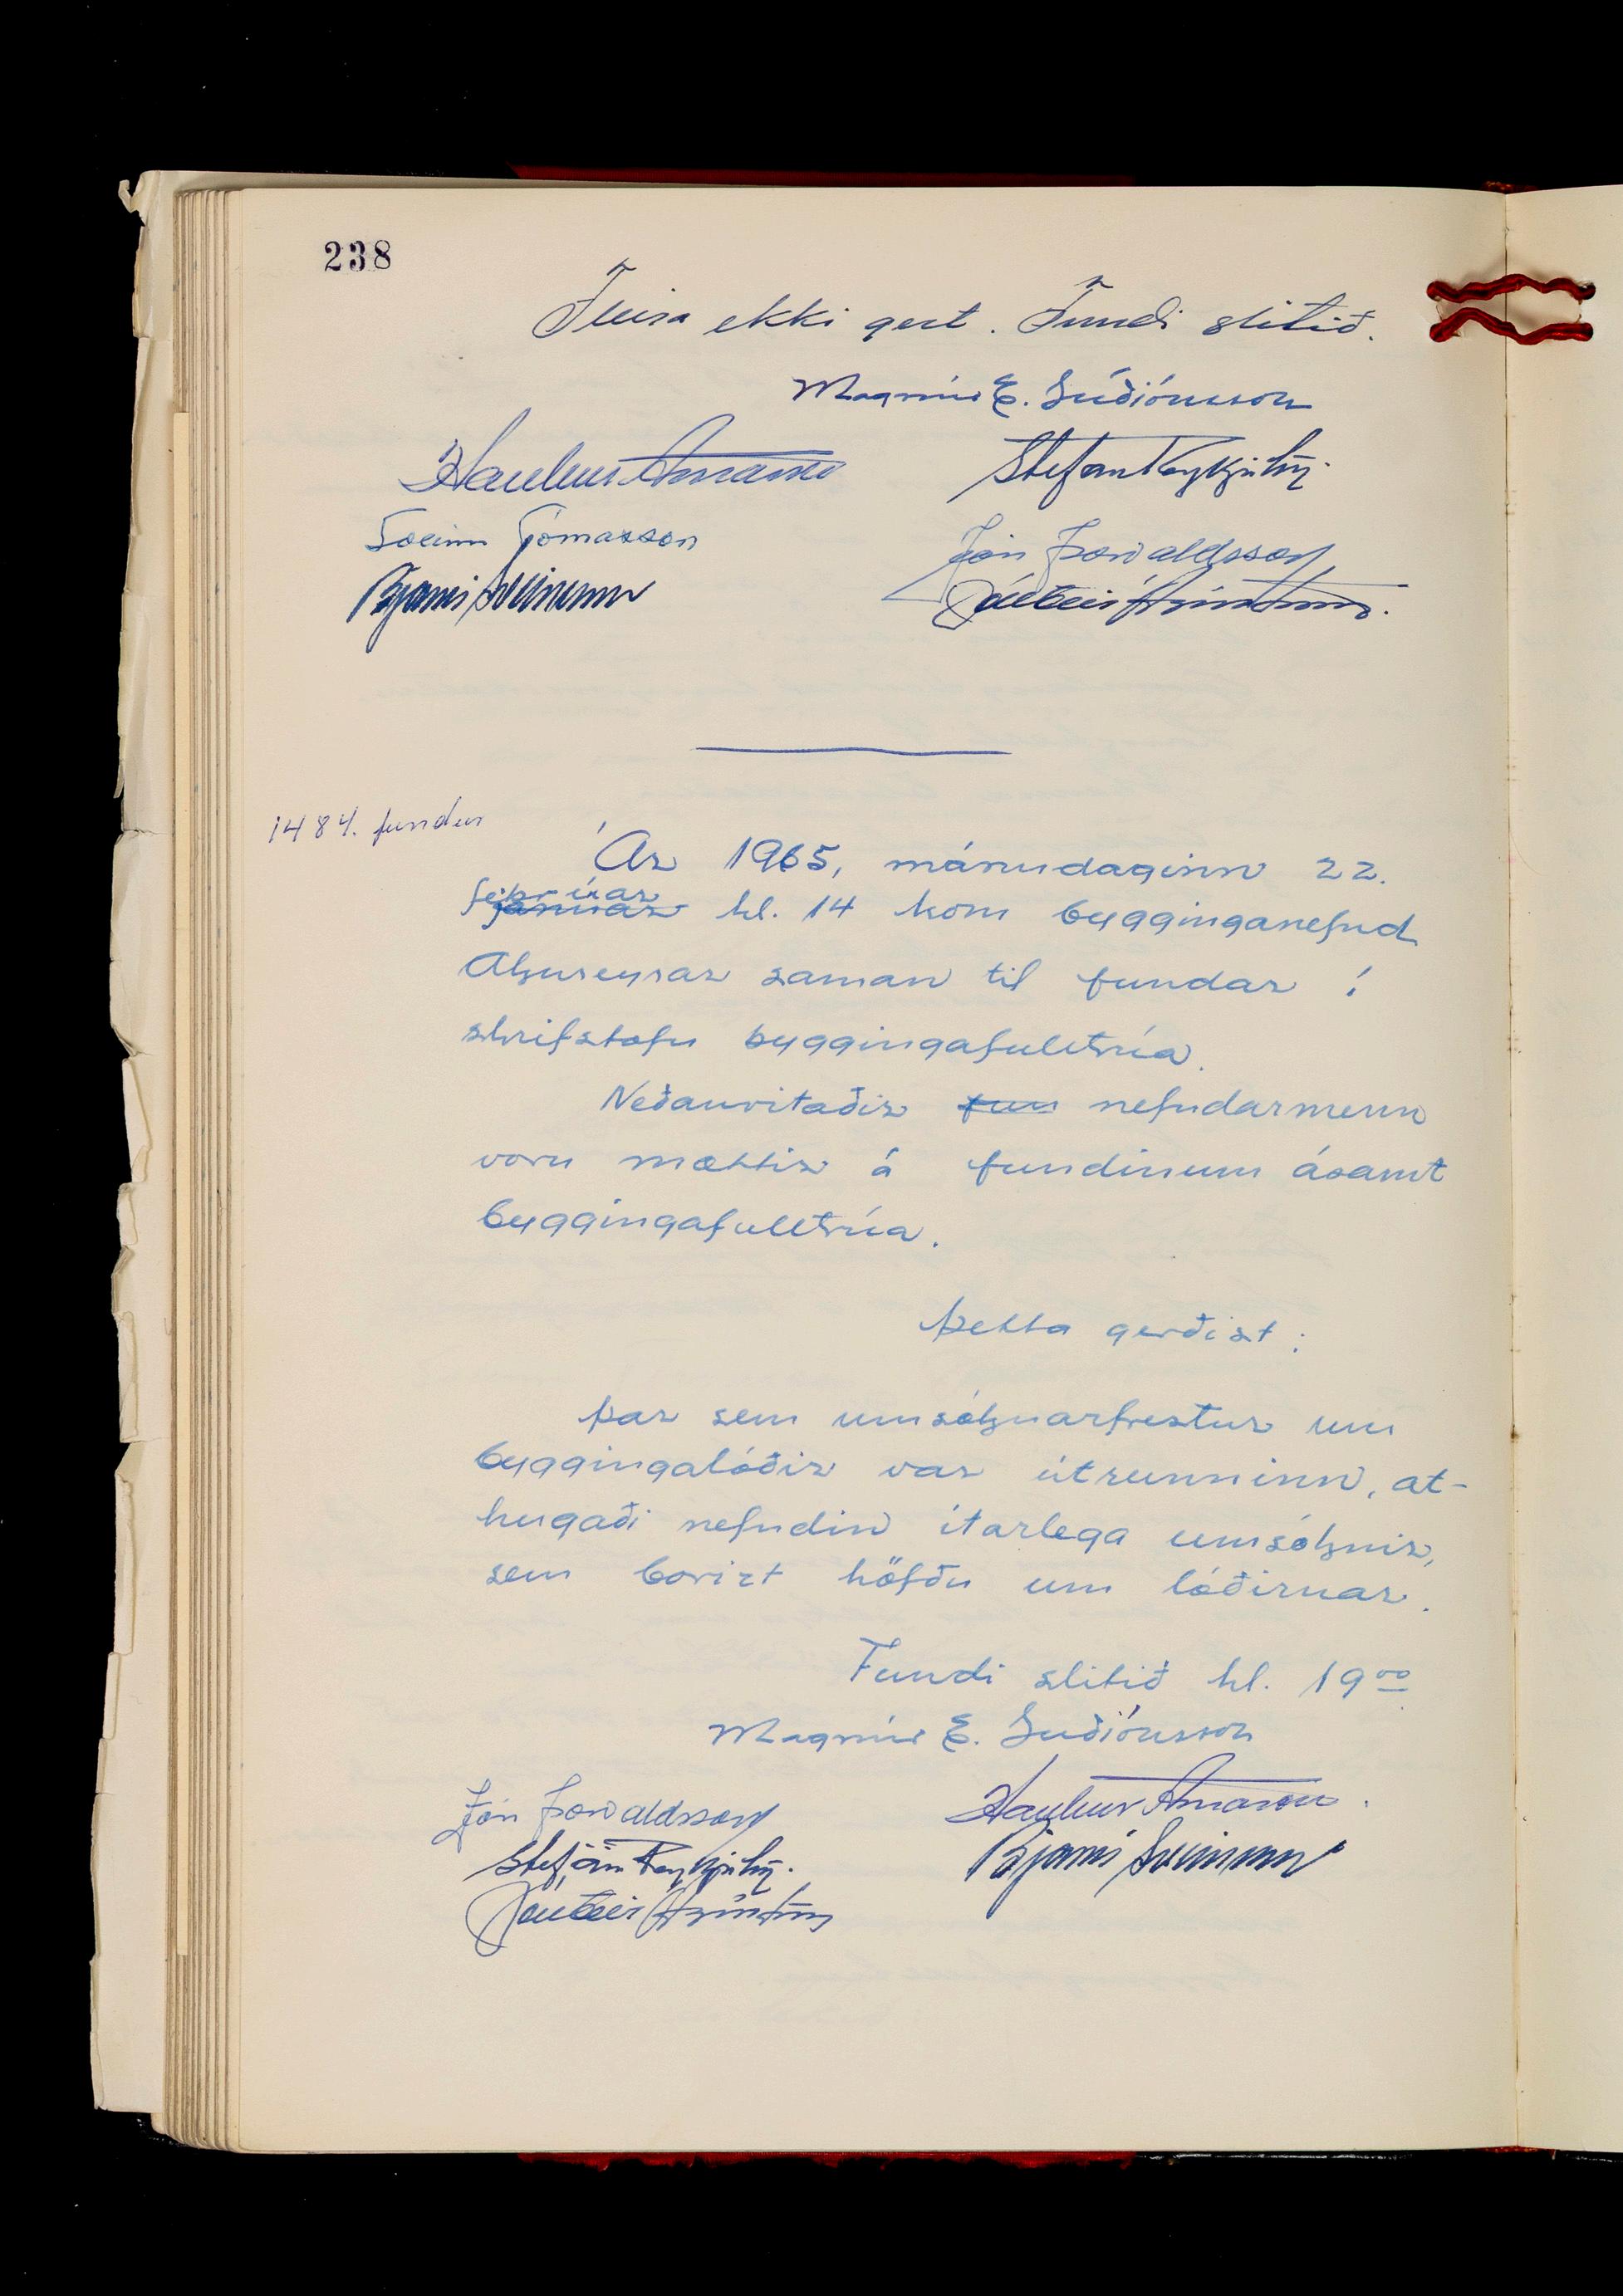 238
Fleira ekki gert. Fundi slitið.
Magnús E. Guðjónsson
Haukur Árnason Stefán Reykjalín.
Sveinn Tómasson Jón Þorvaldsson
Bjarni Sveinsson
1484. fundur
Ár 1965, mánudaginn 22.
febrúar
janúar kl. 14 kom bygginganefnd
Akureyrar saman til fundar í
skrifstofu byggingafulltrúa.
Neðanritaðir fun nefndarmenn
voru mættir á fundinum ásamt
byggingafulltrúa.
Þetta gerðist:
Þar sem umsóknarfrestur um
byggingalóðir var útrunninn, at-
hugaði nefndin ítarlega umsóknir,
sem borizt höfðu um lóðirnar.
Fundi slitið kl. 19⁰⁰
Magnús E. Guðjónsson
Jón Þorvaldsson Haukur Árnason.
Stefán Reykjalín. Bjarni Sveinsson